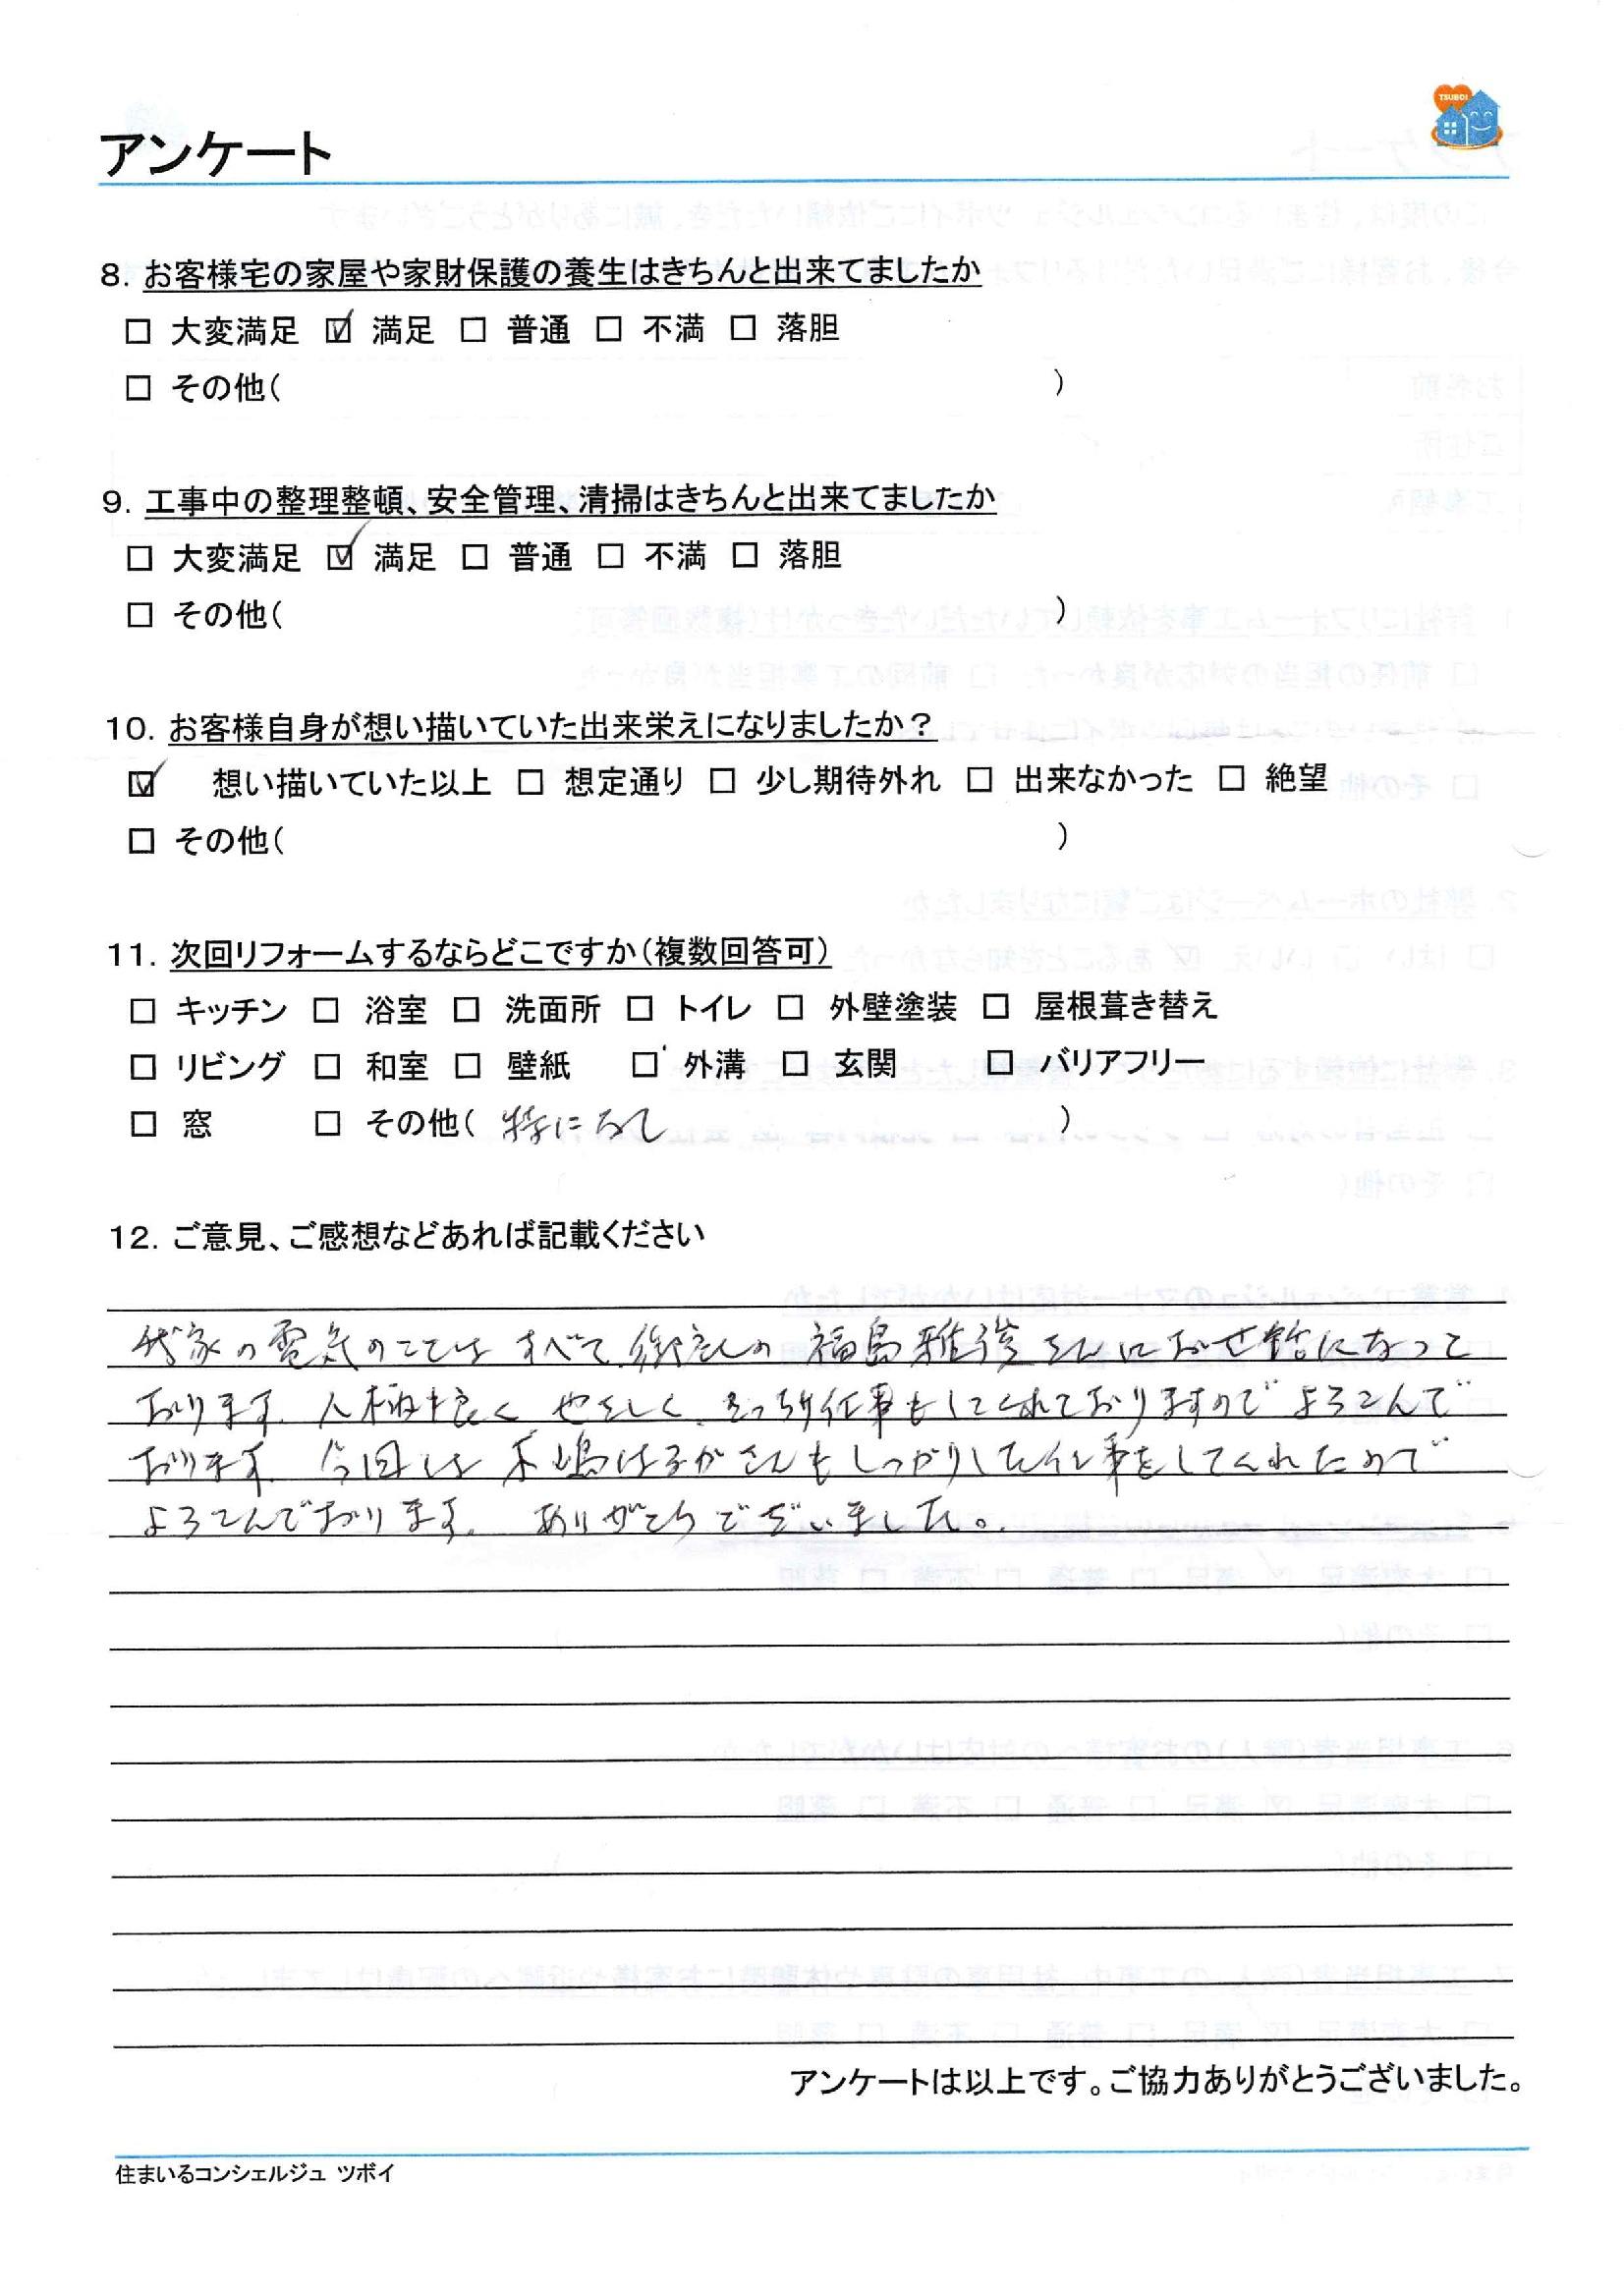 TSUBOI
アンケート
8. お客様宅の家屋や家財保護の養生はきちんと出来てましたか
□ 大変満足 ☑ 満足 □ 普通 □ 不満 □ 落胆
□ その他( )
9. 工事中の整理整頓、安全管理、清掃はきちんと出来てましたか
□ 大変満足 ☑ 満足 □ 普通 □ 不満 □ 落胆
□ その他( )
10. お客様自身が想い描いていた出来栄えになりましたか？
☑ 想い描いていた以上 □ 想定通り □ 少し期待外れ □ 出来なかった □ 絶望
□ その他( )
11. 次回リフォームするならどこですか(複数回答可)
□ キッチン □ 浴室 □ 洗面所 □ トイレ □ 外壁塗装 □ 屋根葺き替え
□ リビング □ 和室 □ 壁紙 □ 外溝 □ 玄関 □ バリアフリー
□ 窓 □ その他( 特になし )
12. ご意見、ご感想などあれば記載ください
我家の電気のことは すべて、 福島 さんにおせ話になって
おります。人柄も良く やさしく、きっちり仕事もしてくれておりますので よろこんで
おります。今回は さんもしっかりした仕事をしてくれたので
よろこんでおります。ありがとうございました。
アンケートは以上です。ご協力ありがとうございました。
住まいるコンシェルジュ ツボイ